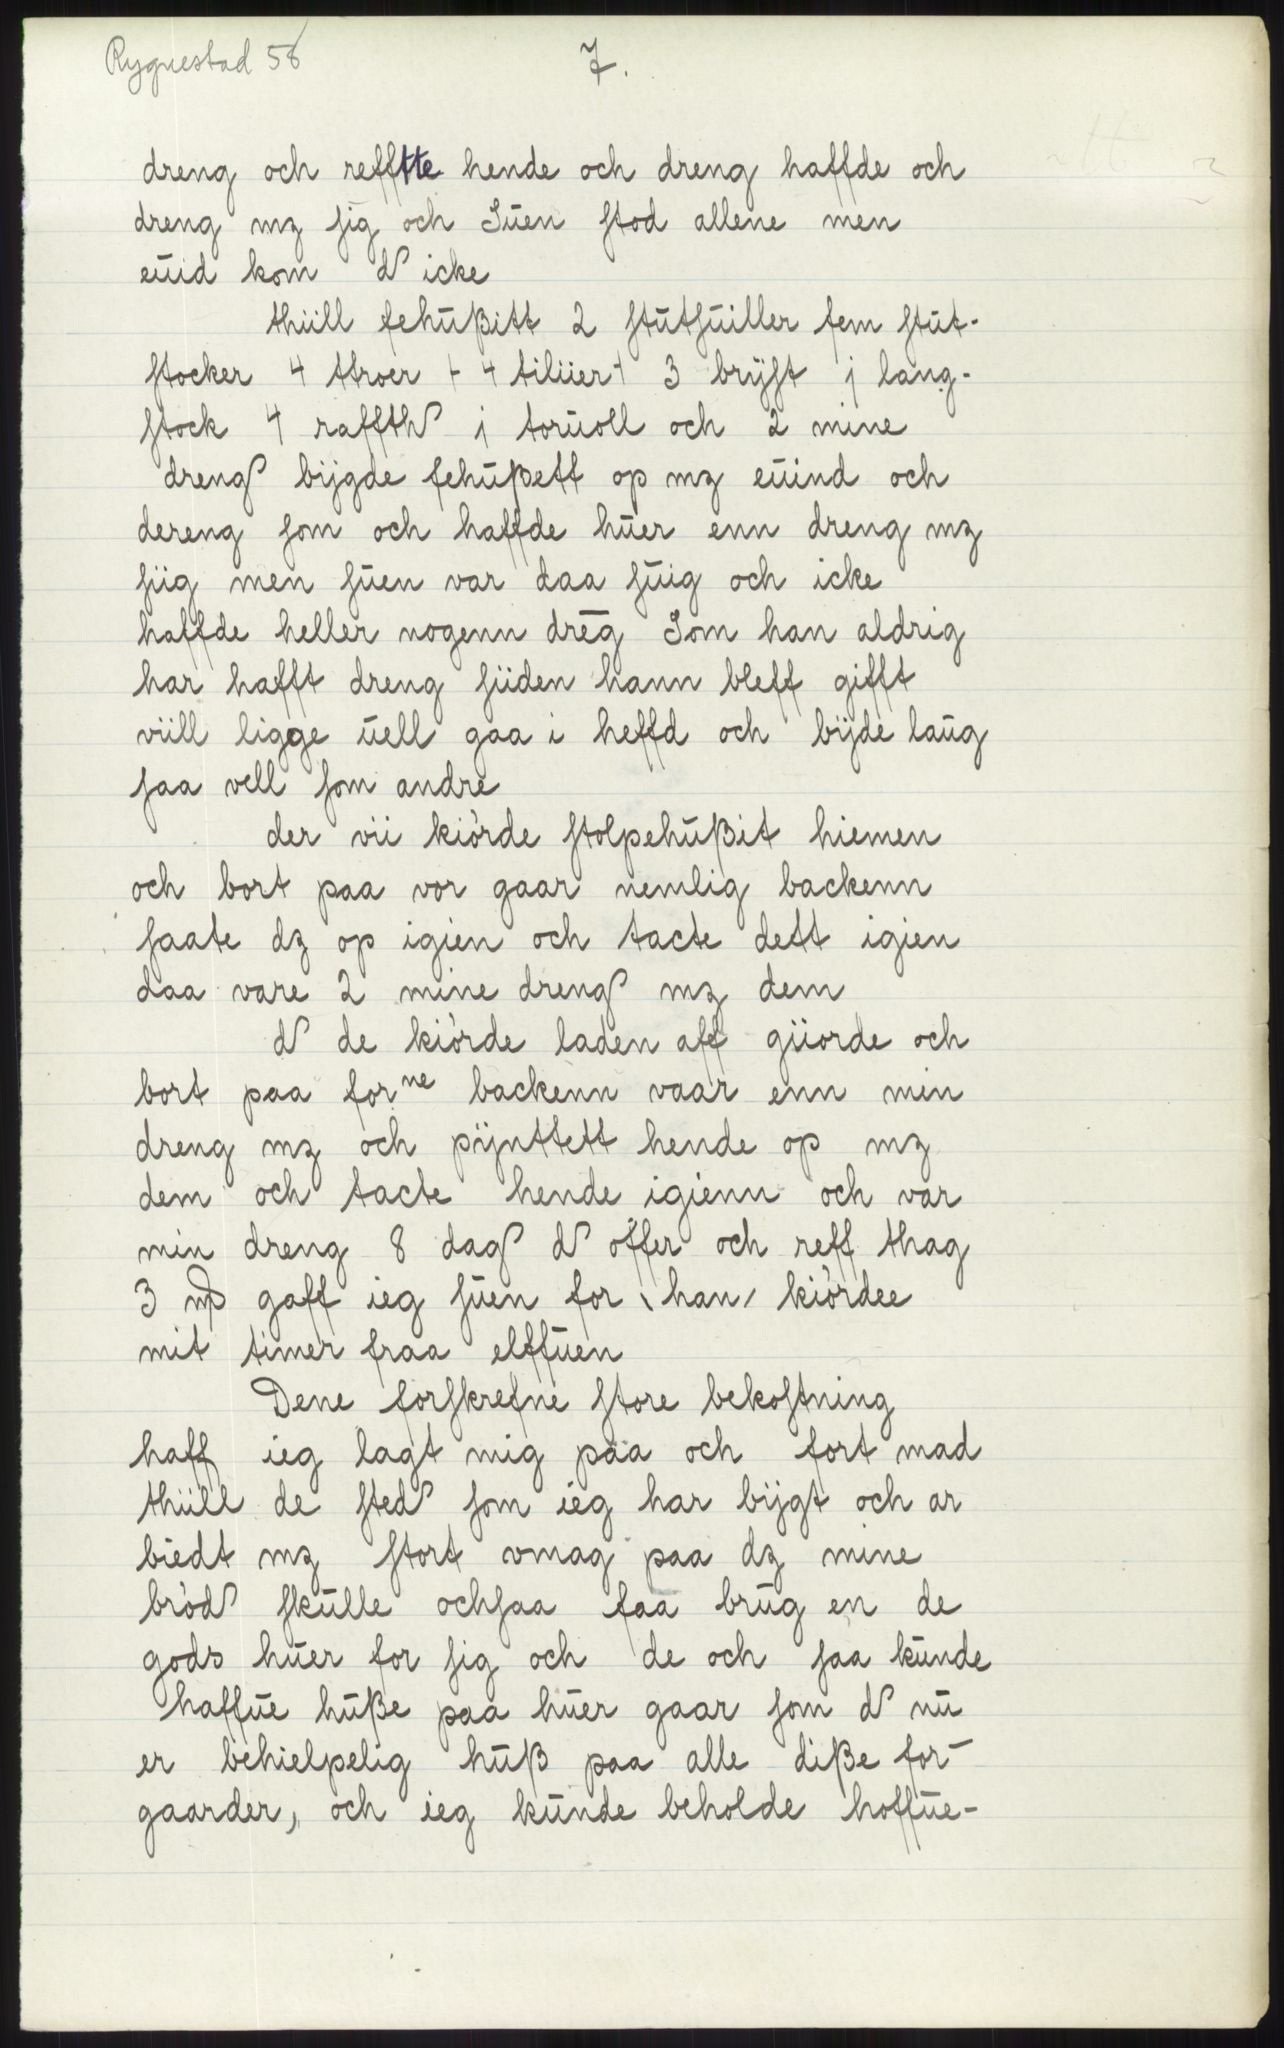 Rygnestad 58
7.
dreng och refftte hende och dreng haffde och
dreng mz sig och Süen stod allene men
eüid kom d icke
thiill fehüßitt 2 stütsüiller fem stüt-
stocker 4 ttroer + 4 tiliier + 3 brÿst j lang-
stock 4 raffth j torüoll och 2 mine
dreng bijgde fehüßett op mz eüind och
dereng som och haffde hüer enn dreng mz
siig men süen var daa süig och icke
haffde heller nogenn drēg Som han aldrig
har hafft dreng siiden hann bleff gifft
viill ligge üell gaa i heffd och bijde laüg
saa vell som andre
der vii kiórde stolpehüßit hiemen
och bort paa vor gaar nemlig backenn
saate dz op igien och tacte dett igien
daa vare 2 mine dreng mz dem
d de kiórde laden aff giiorde och
bort paa forne backenn vaar enn min
dreng mz och pijnttett hende op mz
dem och tacte hende igienn och var
min dreng 8 dag d offer och reff thag
3 mp gaff ieg süen for \han/ kiórdee
mit timer fraa elffüen
Dene forskrefne store bekostning
haff ieg lagt mig paa och fort mad
thiill de sted som ieg har bijgt och ar
biedt mz stort vmag paa dz mine
bród skülle ochsaa faa brüg en de
gods hüer for sig och de och saa künde
haffüe hüße paa hüer gaar som d nü
er behielpelig hüß paa alle diße for-
gaarder, och ieg künde beholde hoffüe-